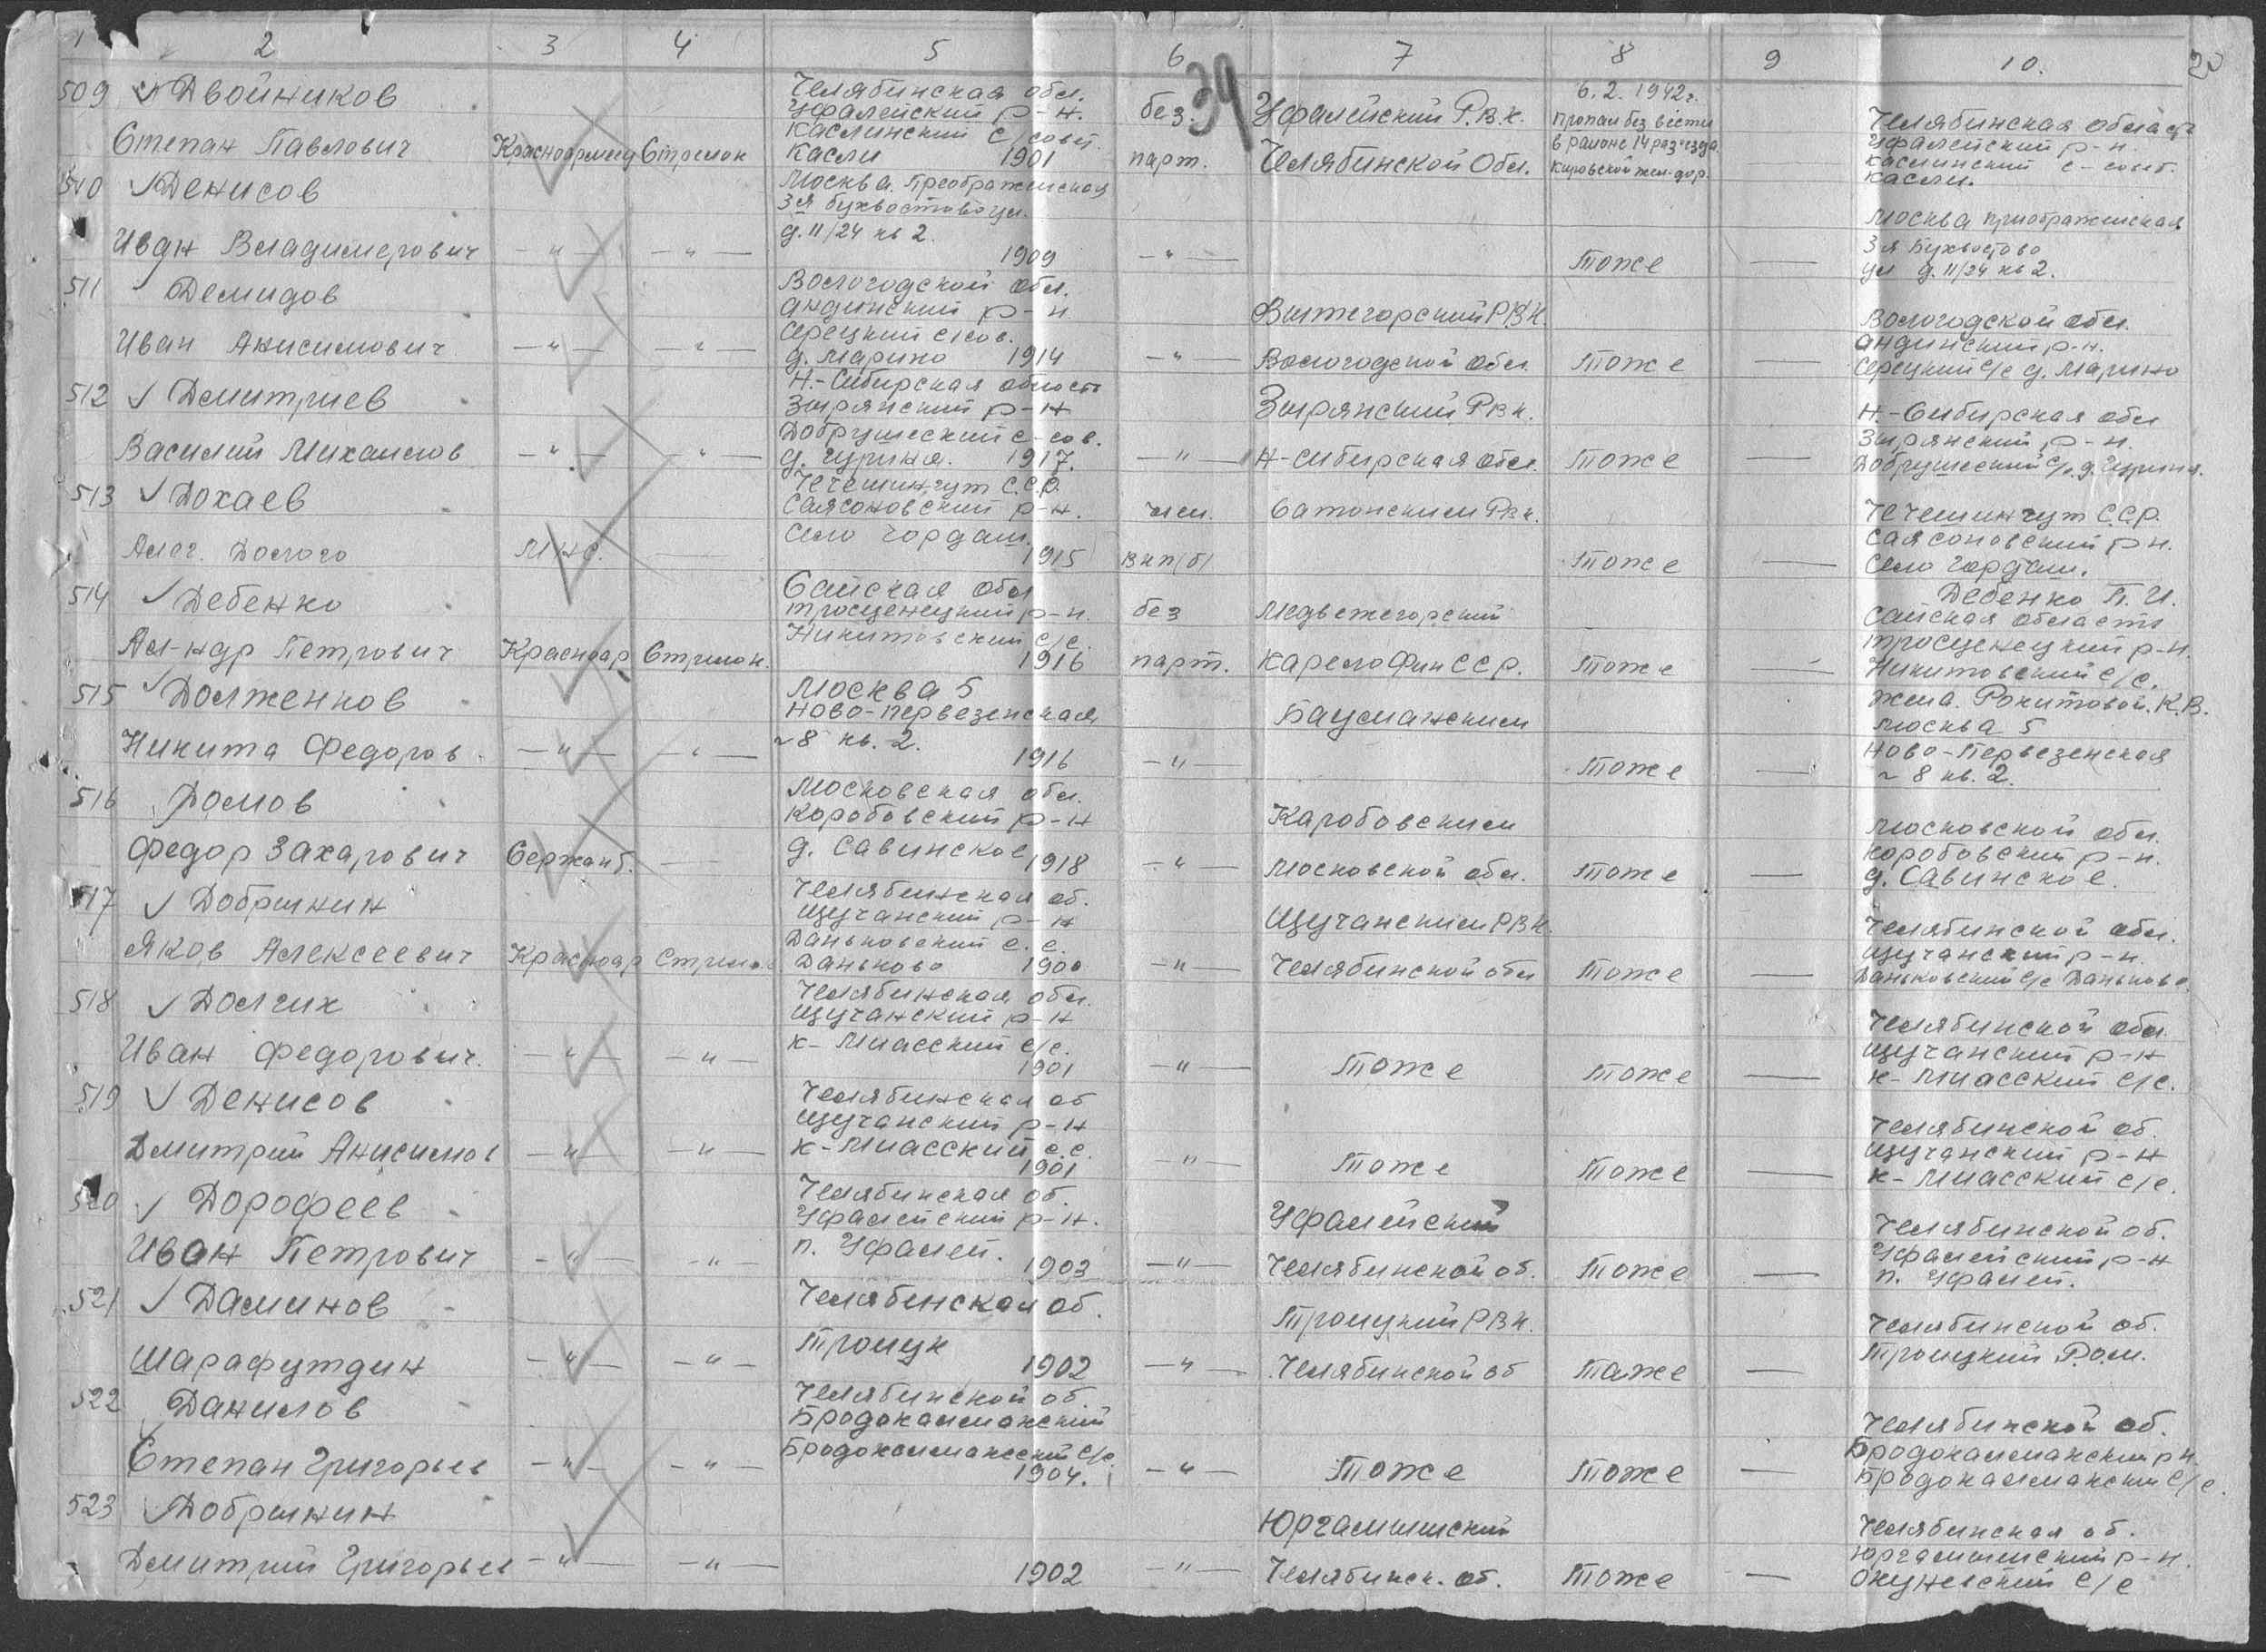 1 2 3 4 5 6 7 8 9 10.
39
509 Двойников
Степан Павлович
Красноармеец Стрелок
Челябинская обл.
Уфалейский р-н.
Каслинский с/совт.
Касли 1901
без.
парт.
Уфалейский Р.В.К.
Челябинской Обл.
6.2.1942 г.
Пропал без вести
в районе 14 разъезда
Кировской жел-дор.
Челябинская область
Уфалейский р-н.
Каслинский с-совт.
Касли.
510 Денисов
Иван Владимерович
—"— —"—
Москва. Преображенская
3я бухвостова ул.
д. 11/24 кв 2.
1909
—"—
Тоже
—
Москва приображенская
3я Бухвостова
ул д. 11/24 кв 2.
511 Демидов
Иван Анисимович
—"— —"—
Вологодской обл.
андинский р-н
Серецкий с/сов.
д. Марино 1914
—"—
Вытегорский РВК.
Вологодской обл.
Тоже
—
Вологодской обл.
андинский р-н.
Серецкий с/с д. Марино
512 Дмитриев
Василий Михаилов
—"— —"—
Н.-Сибирская область
Зырянский р-н
Добрушеский с-сов.
1917.
—"—
Зырянский РВК.
Н-Сибирская обл.
Тоже
—
Н.-Сибирская обл
Зырянский р-н.
513 Докаев
МНС. —
С.С.Р.
Саясоновский р-н.
Село Гордаш.
1915
чл.
ВКП(б)
Тоже
—
С.С.Р.
Саясоновский р н.
Село Гордаш.
514 Дебенко
Ал-ндр Петрович
Красноар Стрелок.
Сайская обл
тросценецкий р-н.
Никитовский с/с.
1916
без
парт.
Медвежегорский
Карело Фин ССР.
Тоже
—
Дебенко П. И.
Сайская область
тросценецкий р-н.
Никитовский с/с.
515 Долженков
Никита Федоров.
—"— —"—
Москва 5
Ново-Первезенская
8 кв. 2.
1916
—"—
Бауманским
Тоже
—
жена. Рокитовой. К.В.
Москва 5
Ново-Первезенская
8 кв. 2.
516 Домов
Федор Захарович
Сержант. —
Московская обл.
Коробовский р-н
д. Савинское
1918
—"—
Каробовским
Московской обл.
Тоже
—
Московской обл.
Коробовский р-н.
д. Савинское.
517 Добрынин
Яков Алексеевич
Красноар Стрелок
Челябинская об.
Щучанский р-н
Даньковский с.с.
Даньково 1900
—"—
Щучанским РВК.
Челябинской обл
Тоже
—
Челябинской обл.
Щучанский р-н.
Даньковский с/с Даньково.
518 Долгих
Иван Федорович.
—"— —"—
Челябинская обл.
Щучанский р-н
К-Миасский с/с.
1901
—"—
Тоже
Тоже
—
Челябинской обл.
Щучанский р-н
К-Миасский с/с.
519 Денисов
Дмитрий Анисимов
—"— —"—
Челябинская об
Щучанский р-н
К-Миасский с.с.
1901
—"—
Тоже
Тоже
—
Челябинской об.
Щучанский р-н
К-Миасский с/с.
520 Дорофеев
Иван Петрович
—"— —"—
Челябинская об.
Уфалейский р-н.
п. Уфалей.
1903
—"—
Уфалейский
Челябинской об.
Тоже
—
Челябинской об.
Уфалейский р-н
п. Уфалей.
521 Даминов
Шарафутдин
—"— —"—
Челябинской об.
Троицк
1902
—"—
Троицкий РВК.
Челябинской об
Таже
—
Челябинской об.
Троицкий Р.о.м.
522 Данилов
Степан Григорьев
—"— —"—
Челябинской об.
Бродокалмакский
Бродокалмакский с/с.
1904.
—"—
Тоже
Тоже
—
Челябинской об.
Бродокалмакский р н.
Бродокалмакский с/с.
523 Добрынин
Дмитрий Григорьев
—"— —"—
1902
—"—
Юргамышский
Челябинск. об.
Тоже
—
Челябинская об.
Юргамышский р-н.
Окуневский с/с